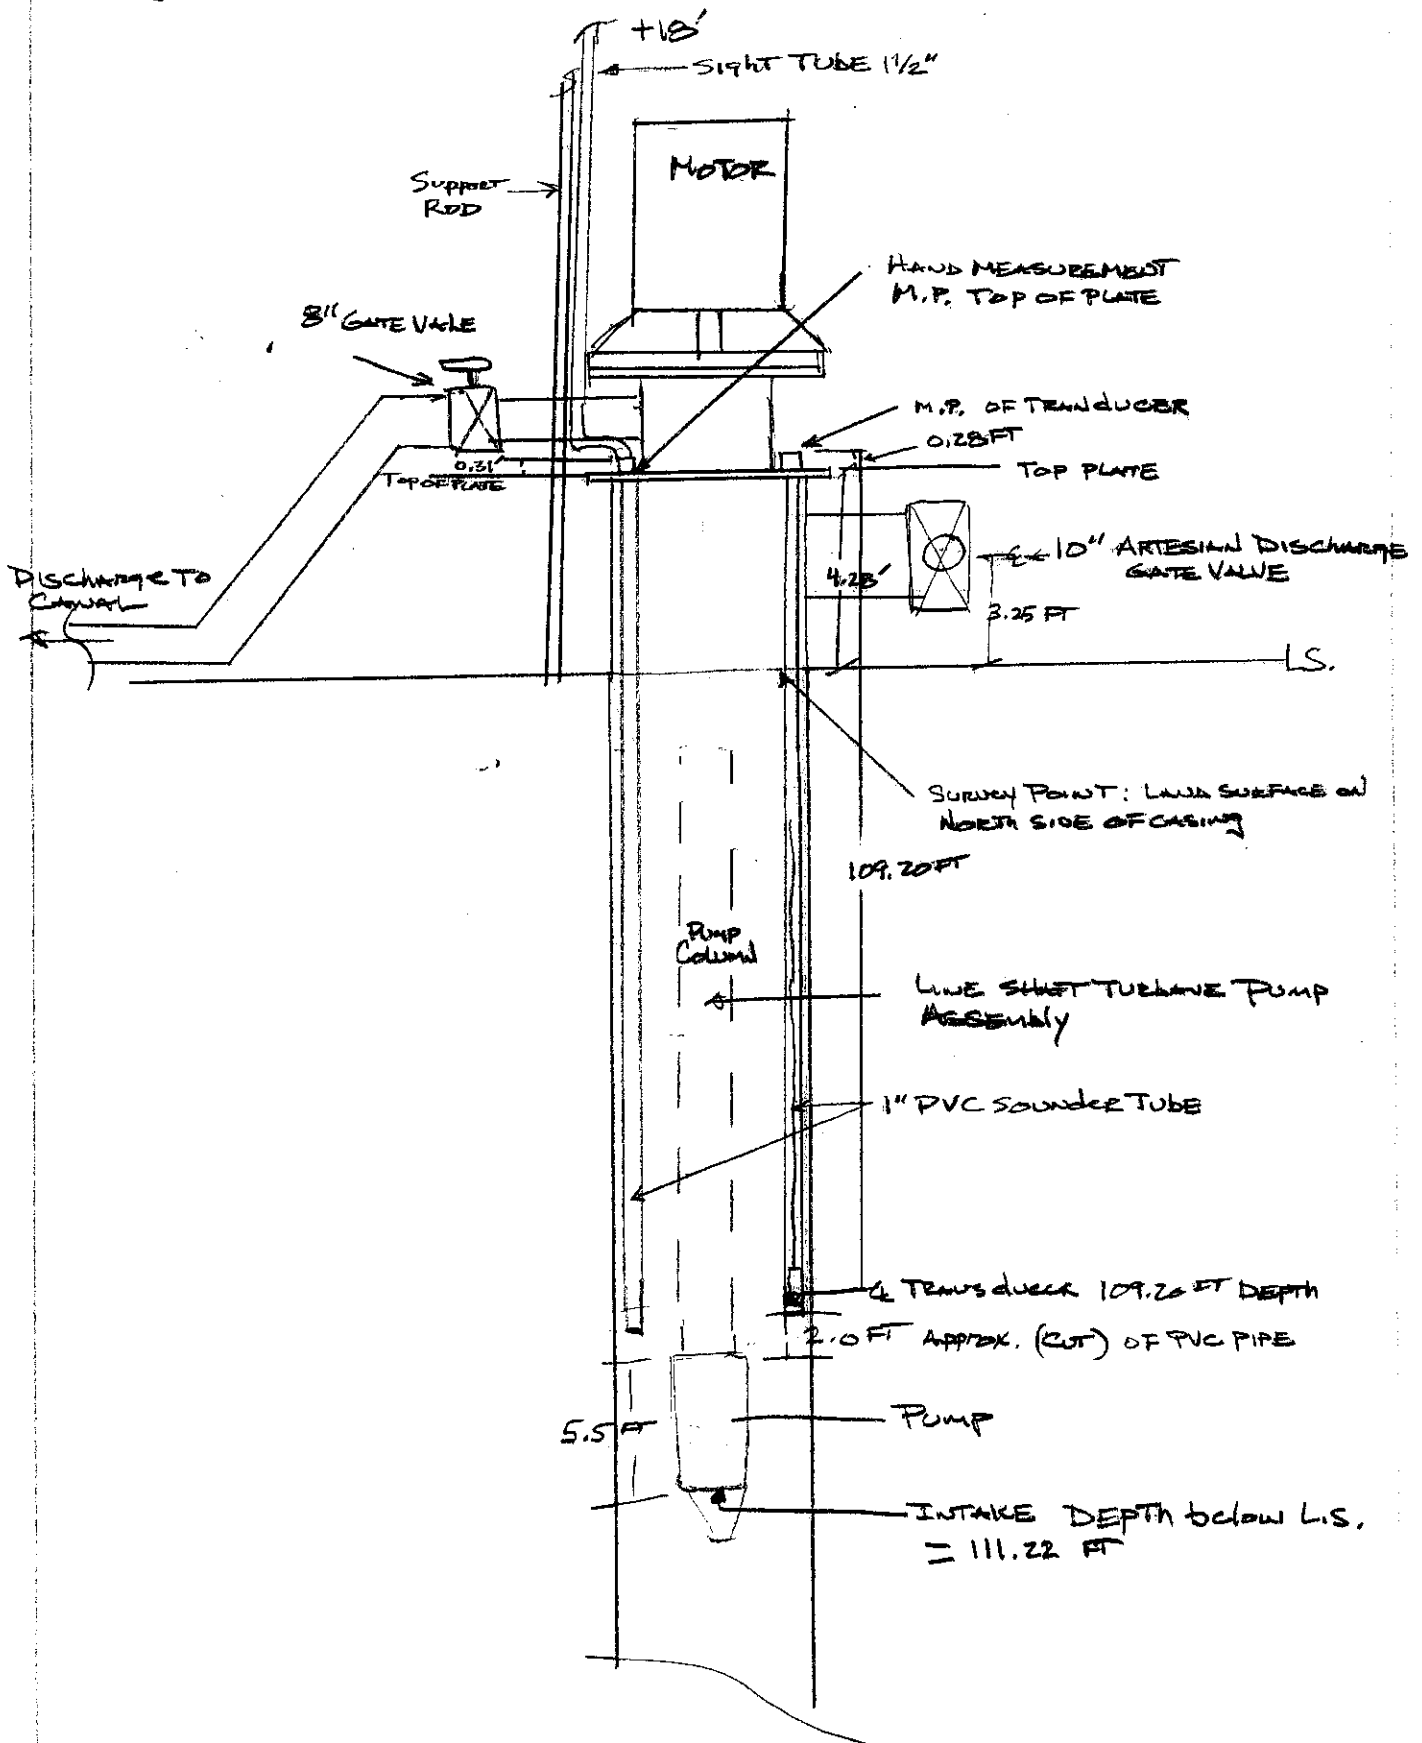 +18'
SIGHT TUBE 1 1/2"
MOTOR
SUPPORT
ROD
HAND MEASUREMENT
M.P. TOP OF PLATE
8" GATE VALE
M.P. OF TRANDUCER
0.28 FT
0.31'
TOP OF PLATE
TOP PLATE
10" ARTESIAN DISCHARGE
GATE VALVE
4.28'
3.25 FT
DISCHARGE TO
CANAL
L.S.
SURVEY POINT: LAND SURFACE ON
NORTH SIDE OF CASING
109.20 FT
PUMP
COLUMN
LINE SHAFT TURBANE PUMP
ASSEMBLY
1" PVC SOUNDER TUBE
℄ TRANSDUCER 109.20 FT DEPTH
2.0 FT APPROX. (CUT) OF PVC PIPE
5.5 FT
PUMP
INTAKE DEPTH below L.S.
= 111.22 FT